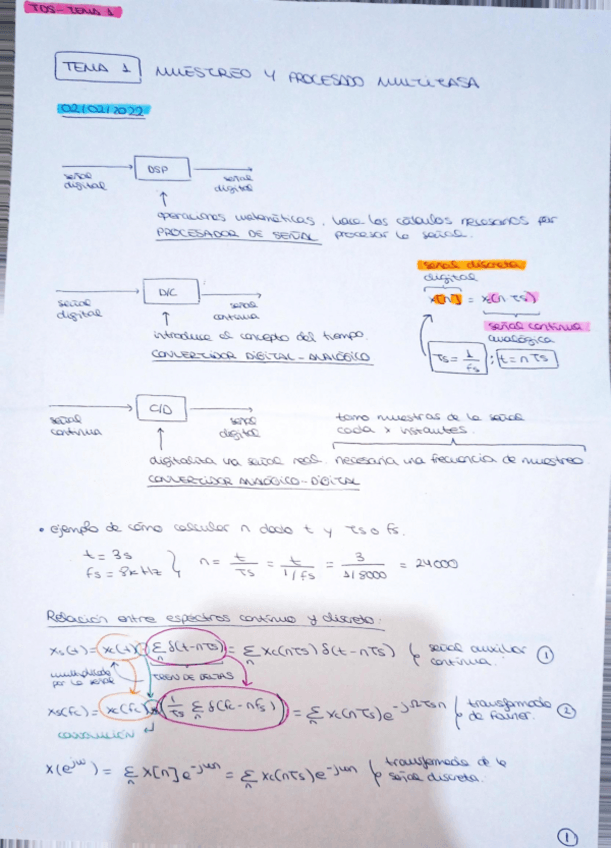 TDS-TEMA 1
TEMA 1 MUESTREO Y PROCESADO MULTITASA
02/02/2022
señal digital DSP señal digital
operaciones matemáticas. hace los cálculos necesarios par
PROCESADOR DE SEÑAL procesar la señal.
señal discreta
digital
x[n] = xc(n Ts)
señal continua
analógica
Ts = 1/fs ; t = n Ts
señal digital D/C señal continua
introduce el concepto del tiempo.
CONVERTIDOR DIGITAL-ANALÓGICO
señal continua C/D señal digital
tomo muestras de la señal
cada x instantes.
digitaliza una señal real. necesaria una frecuencia de muestreo
CONVERTIDOR ANALÓGICO-DIGITAL
• ejemplo de cómo calcular n dado t y Ts o fs.
t = 3s
fs = 8kHz } n = t/Ts = t/1/fs = 3/1/8000 = 24000
Relación entre espectros continuo y discreto:
xs(t) = xc(t) · Σn δ(t-nTs) = Σn xc(nTs) δ(t-nTs) señal auxiliar continua. ①
multiplicado por la señal TREN DE DELTAS
Xs(fc) = Xc(fc) * (1/Ts Σn δ(fc-nfs)) = Σn xc(nTs) e^-jΩTsn transformada de Fourier. ②
CONVOLUCIÓN
X(e^jω) = Σn x[n] e^-jωn = Σn xc(nTs) e^-jωn transformada de la señal discreta.
①